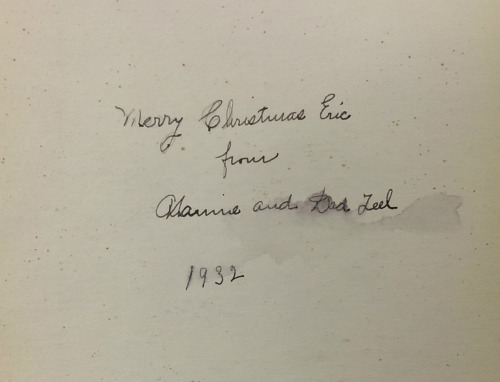 Merry Christmas Eric
from
and Dad Teel
1932